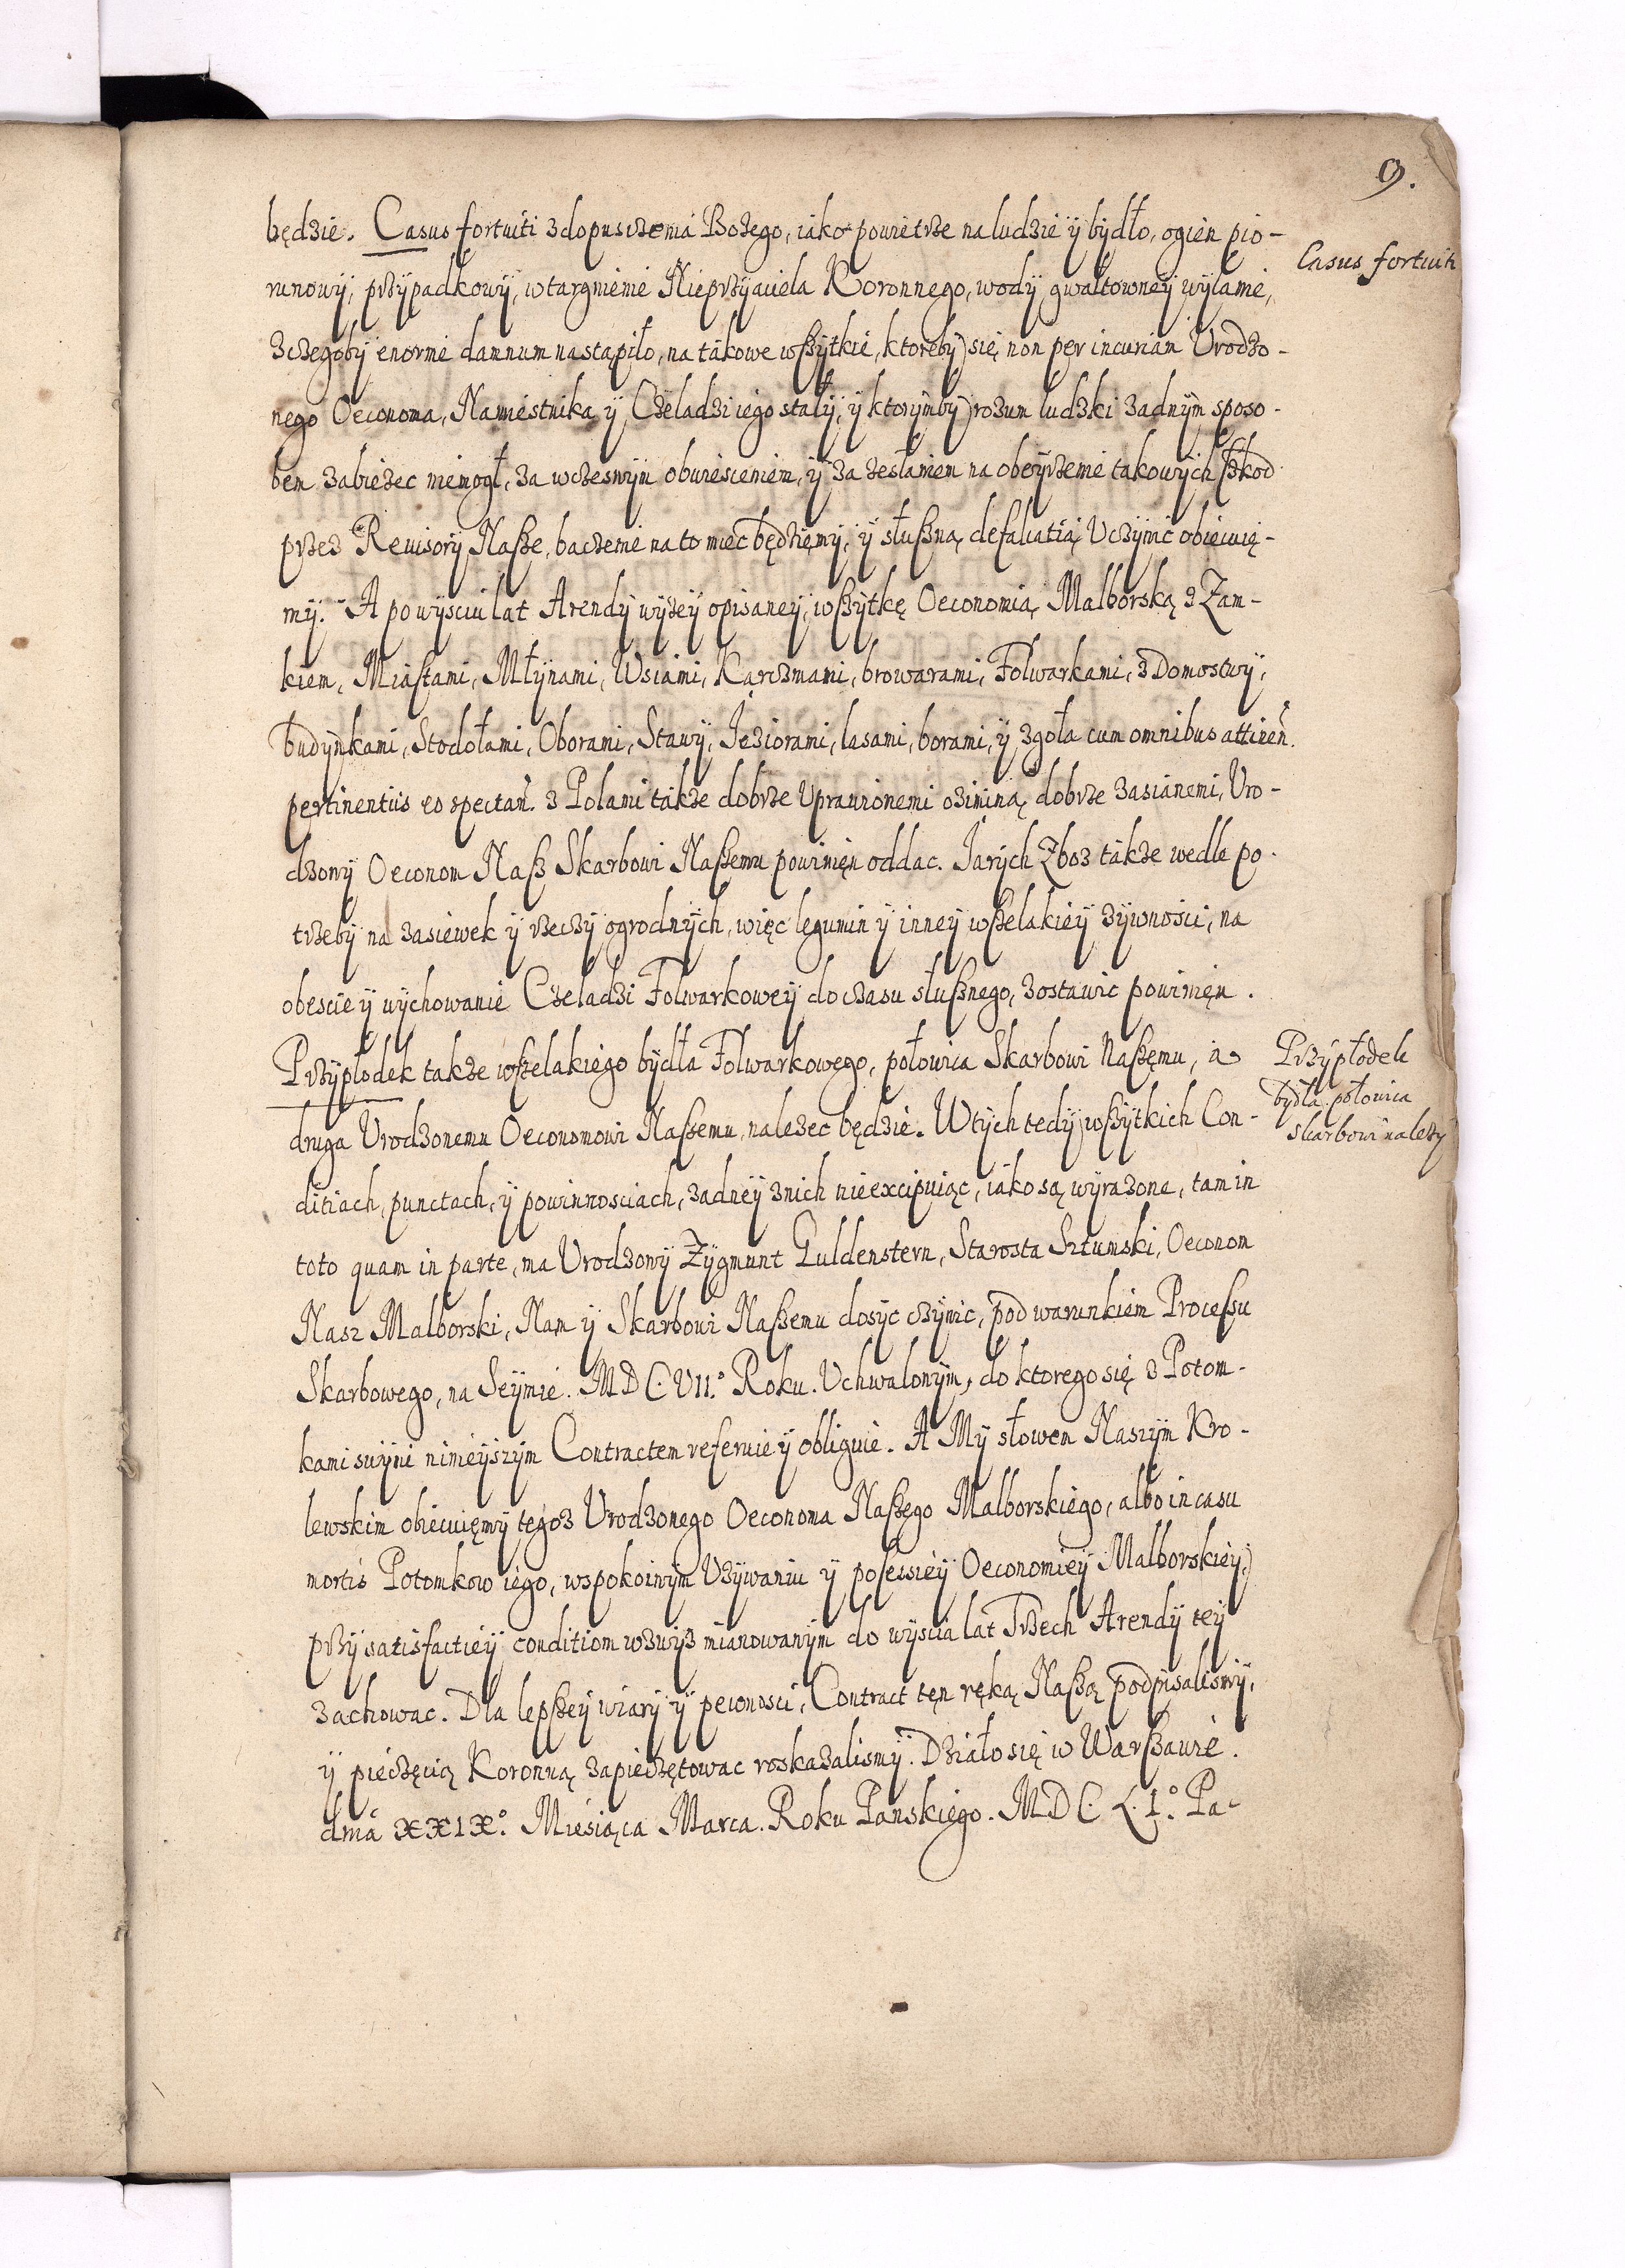 9.
będzie. Casus fortuiti z dopusczenia Bożego, iako powietrze na ludzie ÿ bÿdło, ogien pio-
Casus fortuiti
runowÿ, przÿpadkowÿ, wtargnienie Nieprzÿiaciela Koronnego, wodÿ gwałtowneÿ wÿlanie,
z czegobÿ enorme damnum nastąpiło, na takowe wßÿtkie, ktorebÿ się non per incuriam Vrodzo-
nego Oeconoma, Namiestnika ÿ Czeladzi iego stałÿ, ÿ ktorÿmbÿ rozum ludzki żadnÿm sposo-
bem zabieżec niemogł, za wczesnÿm obwiesceniem, ÿ za zesłaniem na obeÿrzenie takowÿch ßkod
przez Revisorÿ Naße, baczenie na to miec będziemÿ, ÿ słußną defalcatią Vczÿnic obiecuię-
mÿ. A po wÿsciu lat Arendÿ wÿżeÿ opisaneÿ, wßÿtkę Oeconomią Malborską z Zam-
kiem, Miastami, Młÿnami, Wsiami, Karczmami, browarami, Folwarkami, z Domostwÿ,
budÿnkami, Stodołami, Oborami, Stawÿ, Jeziorami, lasami, borami, ÿ zgoła cum omnibus attinen.
pertinentiis eo spectan. z Polami także dobrze Vprawionemi oziminą dobrze zasianemi, Vro-
dzonÿ Oeconom Naß Skarbowi Naßemu powinięn oddac. Jarÿch Zboz także wedle po-
trzebÿ na zasiewek ÿ rzeczÿ ogrodnÿch, więc legumin ÿ inneÿ wßelakieÿ żÿwności, na
obescie ÿ wÿchowanie Czeladzi Folwarkoweÿ do czasu słußnego, zostawic powinięn.
Przÿpłodek także wßelakiego bÿdła Folwarkowego, połowica Skarbowi Naßęmu, a
Przÿpłodek
bÿdła połowica
skarbowi należÿ
druga Vrodzonemu Oeconomowi Naßemu, należec będzie. W tÿch tedÿ wßÿtkich Con-
ditiach, punctach, ÿ powinnosciach, żadneÿ z nich nieexcipuiąc, iako są wÿrażone, tam in
toto quam in parte, ma Vrodzonÿ Zÿgmunt Guldenstern, Starosta Sztumski, Oeconom
Nasz Malborski, Nam ÿ Skarbowi Naßemu dosÿc czÿnic, pod warunkiem Processu
Skarbowego, na Seÿmie. MDC.VII.° Roku. Vchwalonÿm, do ktorego się z Potom-
kami swÿmi ninieÿszÿm Contractem referuie ÿ obliguie. A Mÿ słowem Naszÿm Kro-
lewskim obiecuięmÿ tegoż Vrodzonego Oeconoma Naßego Malborskiego, albo in casu
mortis Potomkow iego, wspokoinÿm Vżÿwaniu ÿ possessieÿ Oeconomieÿ Malborskieÿ,
przÿ satisfactieÿ conditiom wzwÿż mianowanÿm do wÿscia lat Trzech Arendÿ teÿ
zachowac. Dla lepßeÿ wiarÿ ÿ pewnosci, Contract tęn ręką Naßą podpisalismÿ,
ÿ pieczęcią Koronną zapieczętowac roskazalismÿ. Działo się w Warßawie.
dnia XXIX.° Miesiąca Marca. Roku Panskiego. MDC.L.I.° Pa-